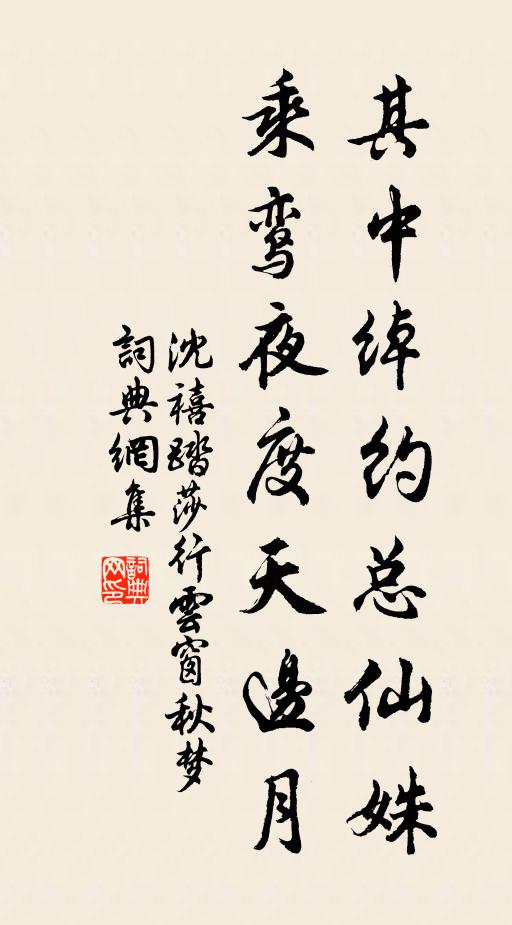 其中绰约总仙姝
乘鸾夜度天邊月
沈禧踏莎行雲窗秋梦
詞典網集
詞典网印